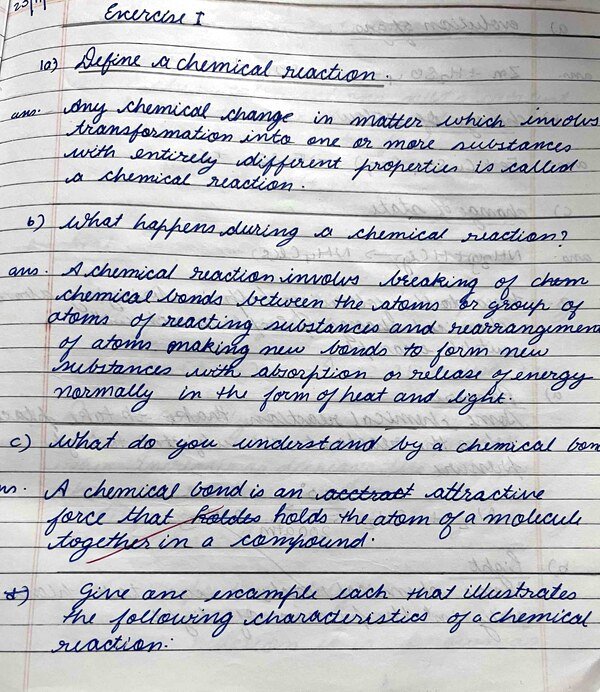 23/11
Exercise I
1a) Define a chemical reaction.
ans. Any chemical change in matter which involvs
transformation into one or more substances
with entirely different properties is called
a chemical reaction.
b) What happens during a chemical reaction?
ans. A chemical reaction involvs breaking of chem
chemical bonds between the atoms or group of
atoms of reacting substances and rearrangemen
of atoms making new bonds to form new
substances with absorption or release of energy
normally in the form of heat and light.
c) What do you understand by a chemical bon
ns. A chemical bond is an acctract attractive
force that holdes holds the atom of a molecule
together in a compound.
d) Give one example each that illustrates
the following characteristics of a chemical
reaction: